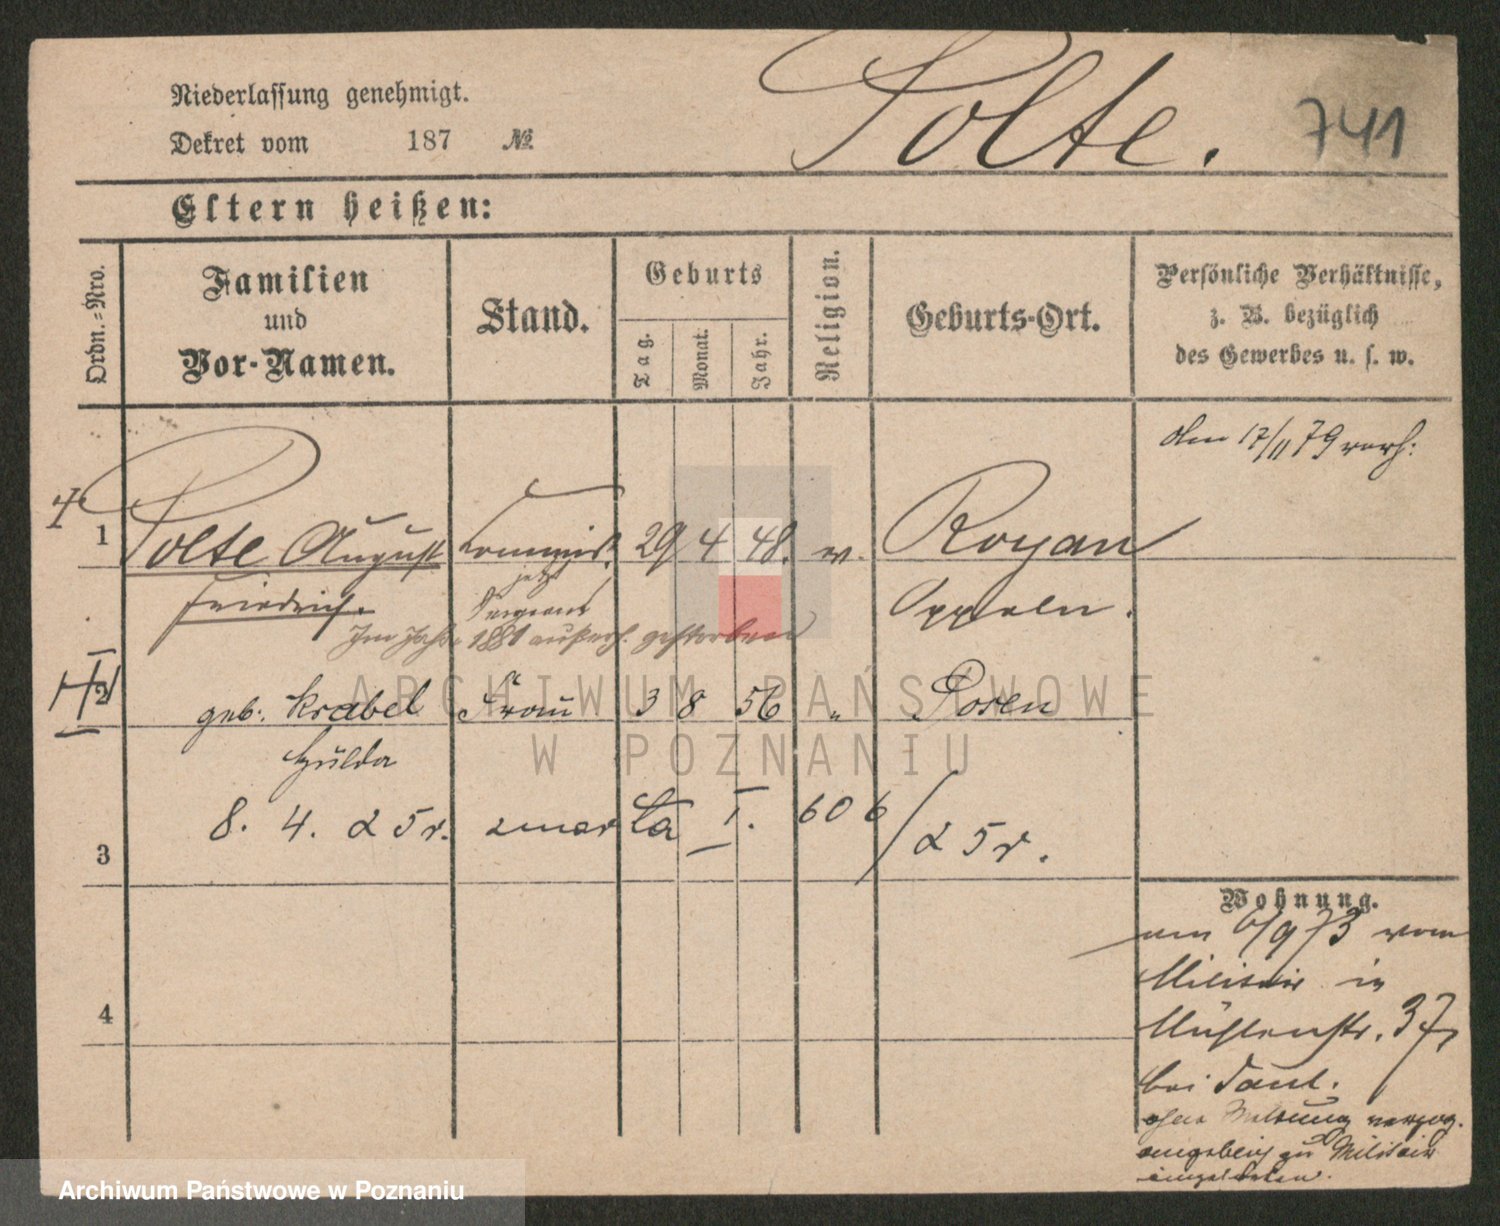 Polte.
741
Niederlassung genehmigt.
Dekret vom 187 №
Eltern heißen:
Ordn.-Nro.
Familien
und
Vor-Namen.
Stand.
Geburts
Tag.
Monat.
Jahr.
Religion.
Geburts-Ort.
Persönliche Verhältnisse,
z. B. bezüglich
des Gewerbes u. s. w.
den 17/11 79 verh:
1 Polte August Commis. 29 4 48. ev. Royan
jetzt
Friedrich. Sergeant Oppeln.
Im Jahre 1881 außerh. gestorben
2 geb. Krabel Frau 3 8 56 " Posen
Hulda
8. 4. 25 r. zmarła I. 606/25 r.
3
Wohnung.
am 6/9 73 vom
Militair in
Mühlenstr. 37,
bei
4
ohne Meldung verzog.
angeblich zu Militair
ARCHIWUM PAŃSTWOWE
W POZNANIU
Archiwum Państwowe w Poznaniu